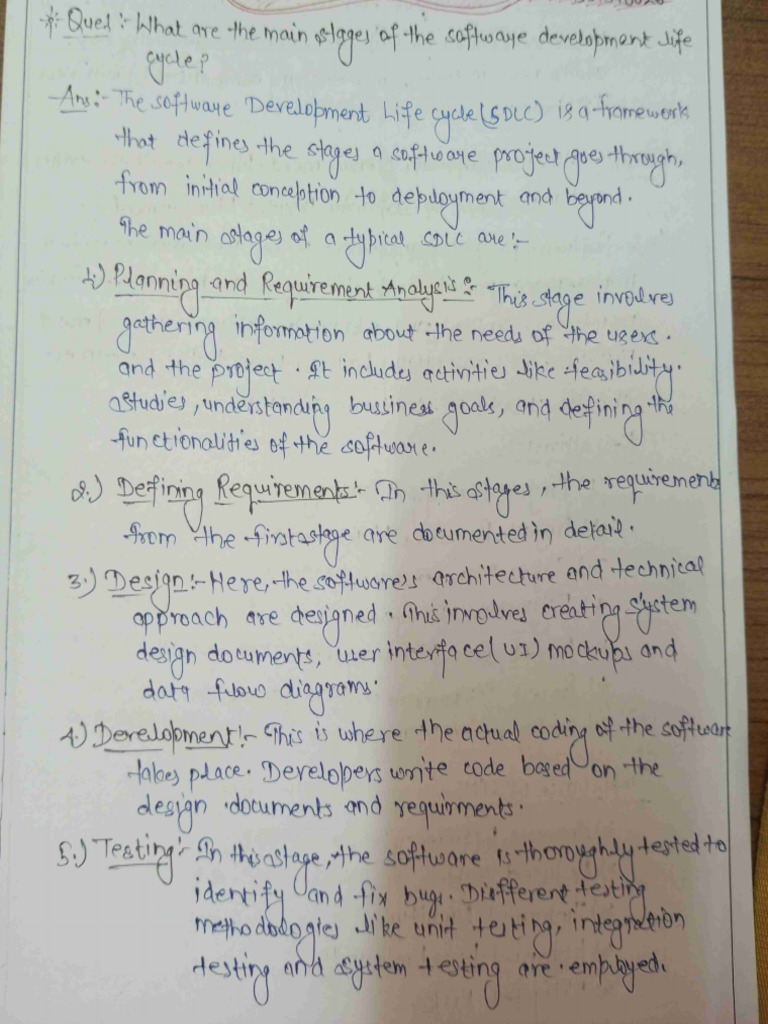 *:- Ques :- What are the main stages of the software development life
cycle?
Ans:- The software Development Life cycle (SDLC) is a framework
that defines the stages a software project goes through,
from initial conception to deployment and beyond.
The main stages of a typical SDLC are:-
1.) Planning and Requirement Analysis :- This stage involves
gathering information about the needs of the users.
and the project. It includes activities like feasibility.
studies, understanding bussiness goals, and defining the
functionalities of the software.
2.) Defining Requirements:- In this stages, the requirements
from the first stage are documented in detail.
3.) Design:- Here, the software's architecture and technical
approach are designed. This involves creating system
design documents, user interface (UI) mockups and
data flow diagrams.
4.) Development:- This is where the actual coding of the software
takes place. Developers write code based on the
design documents and requirments.
5.) Testing:- In this stage, the software is thoroughly tested to
identify and fix bugs. Different testing
methodologies like unit testing, integration
testing and system testing are employed.